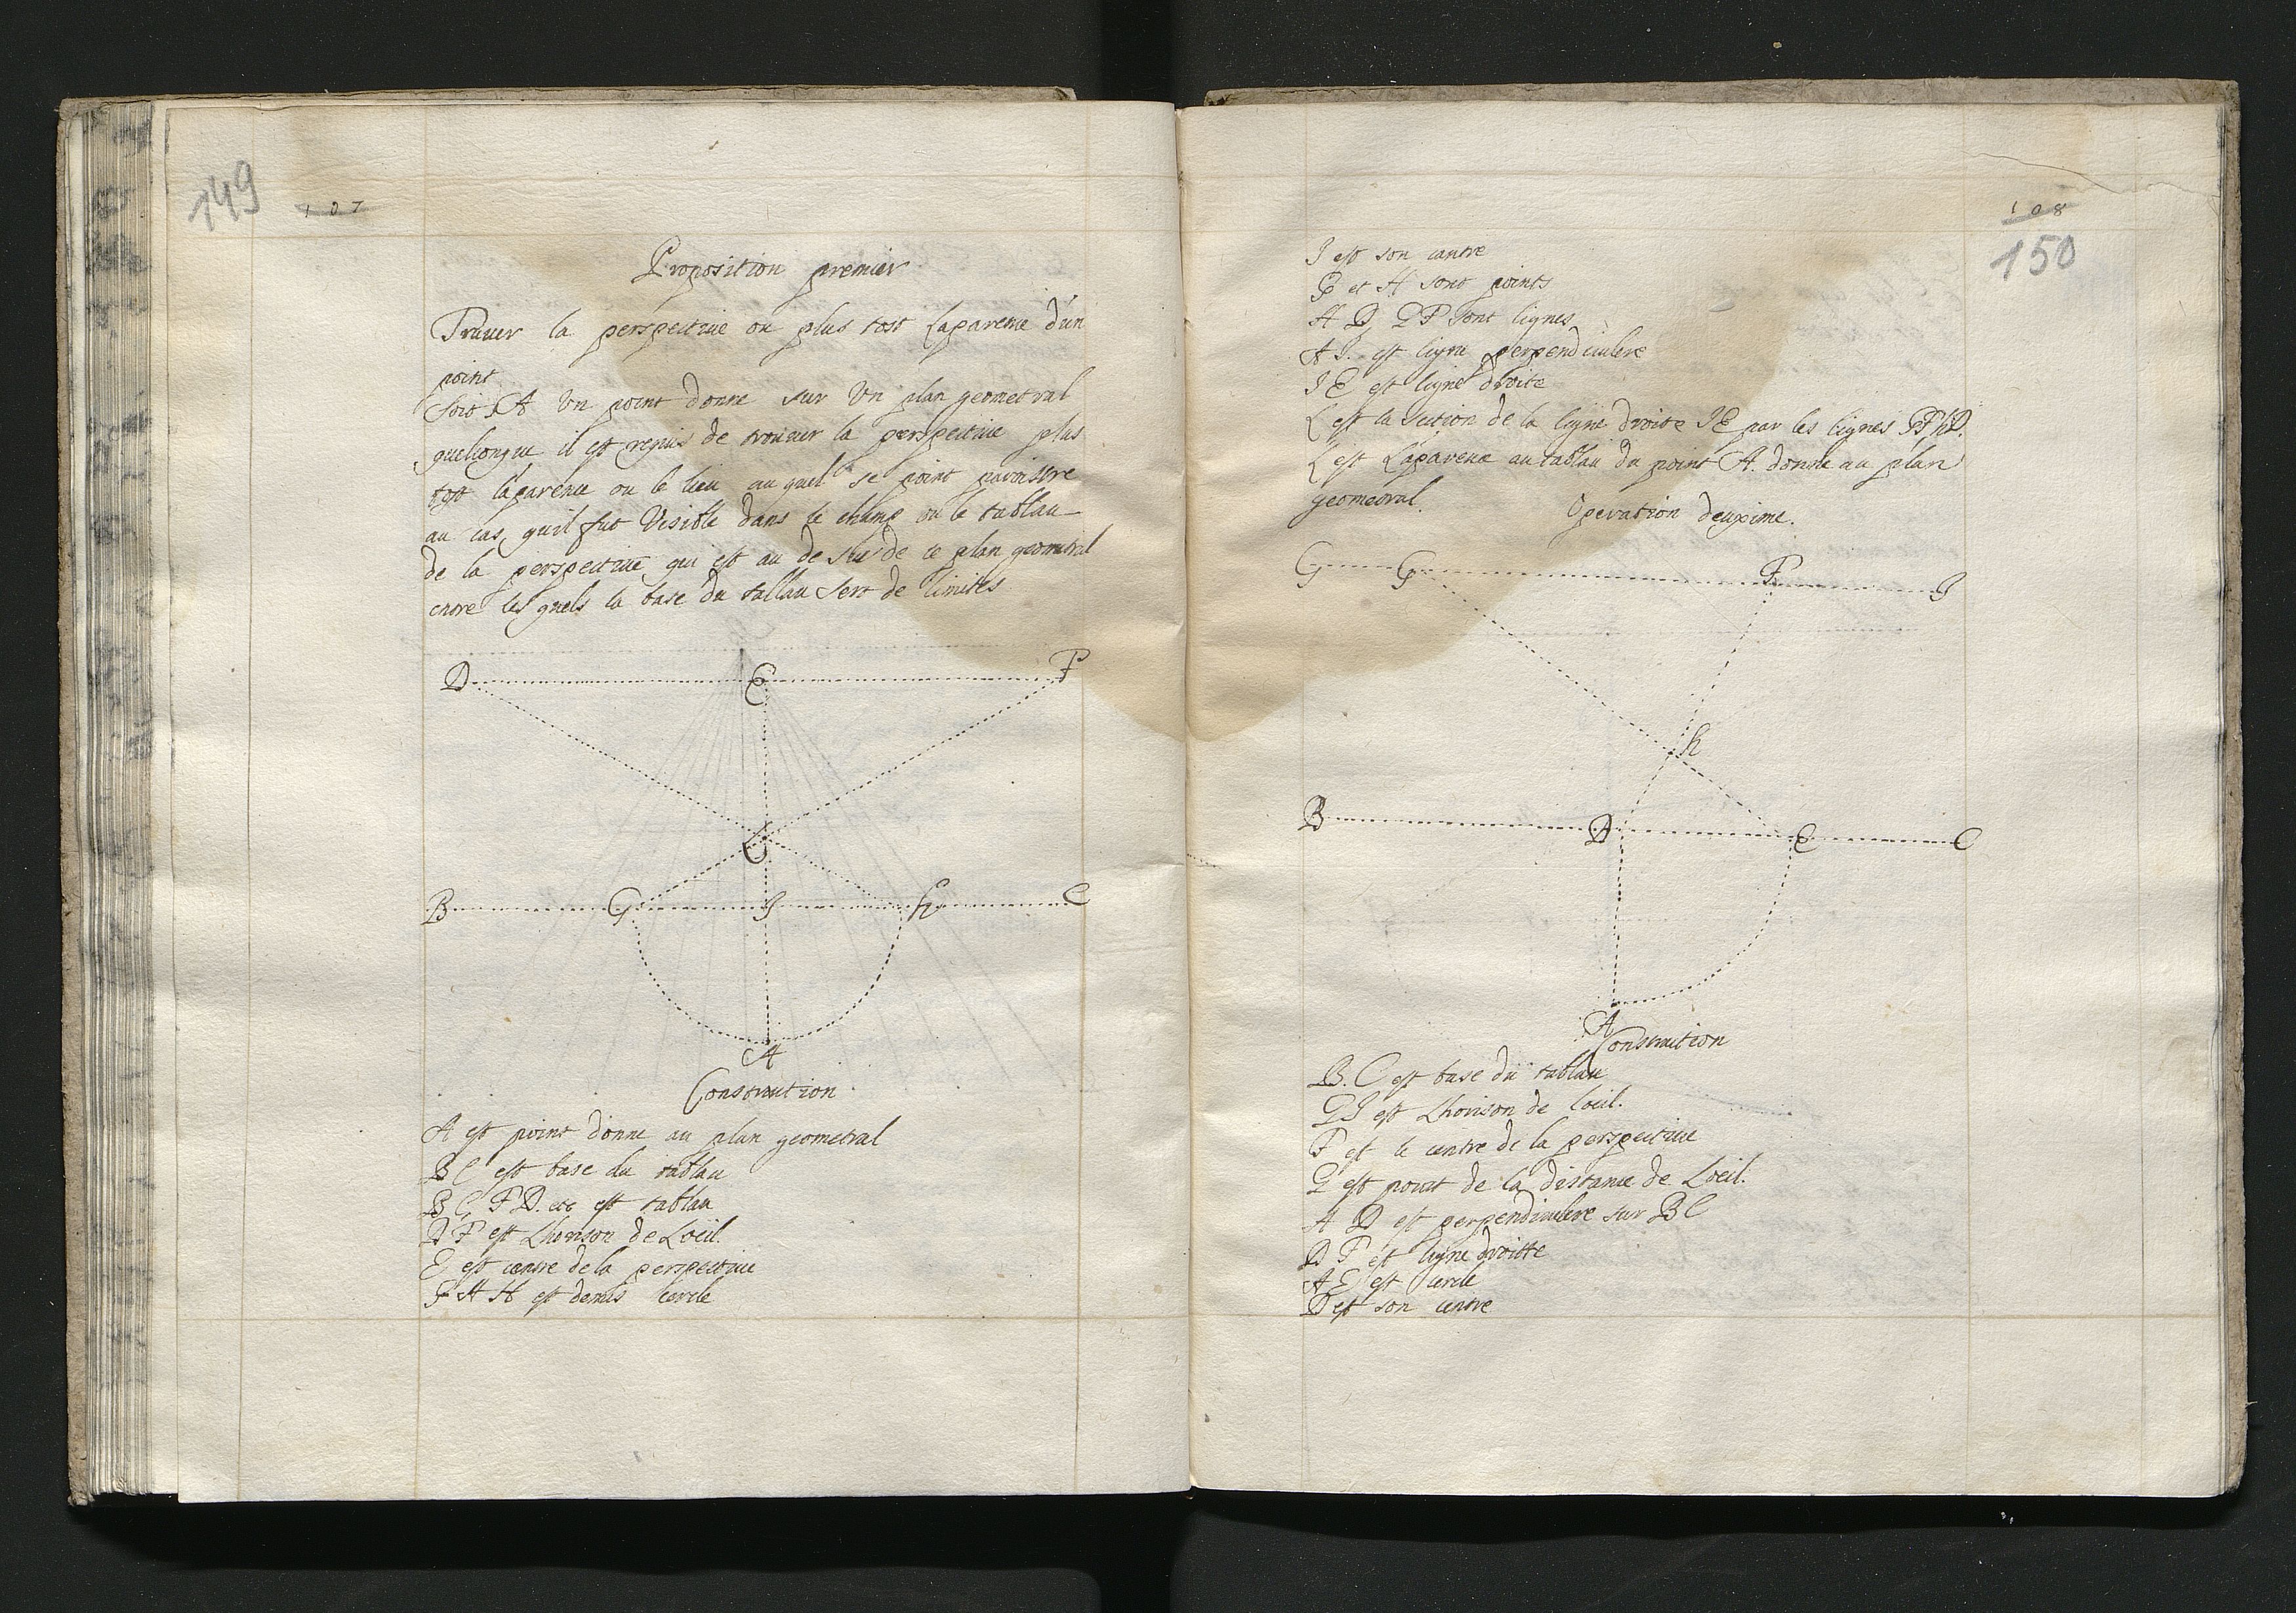 149
107
Proposition premier
Truuer la perspectiue ou plus tost Laparence d'un
point
Soit A Un point donne sur Un plan geometral
quelconque il est requis de trouuer la perspectiue plus
tost laparence ou le lieu auquel se point paroistre
au cas, quil fut Visible dans le champ ou le tablau
de la perspectiue qui est au de sus de ce plan geometral
entre les quels la base du tallau sert de limites
D E F
C
B G I h C
A
Construction
A est point donne au plan geometral
B C est base du tablau
B C F D. etc est tablau
D F est Lhorison de Loeil.
E est centre de la perspectiue
G A H est demis cercle
108
150
I est son centre
G et H sont points
H D, G F sont lignes
A I. est ligne perpendiculere
I E est ligne droite
L est la section de la ligne droite I E par les lignes GF, hD.
L est Laparence au tablau du point A. donne au plan
geometral.
Operation deuxime.
G G F I
h
B D E C
A
Construction
B. C est base du tablau
G I est Lhorison de loeil.
F est le centre de la perspectiue
G est point de la distance de Loeil.
A D est perpendiculere sur B C
D F est ligne droitte
A E est cercle
D est son centre